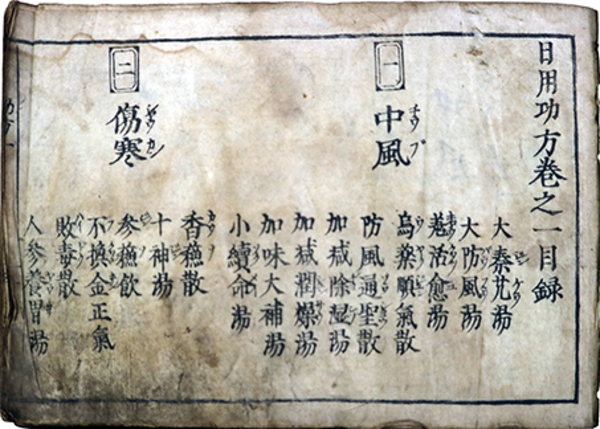 日用功方巻之一目録
一
中風
大秦艽湯
大防風湯
羗活愈湯
烏薬順氣散
防風通聖散
加減除湿湯
加減潤燥湯
加味大補湯
小續命湯
二
傷寒
香蘓散
十神湯
参蘓飲
不換金正氣
敗毒散
人参養胃湯